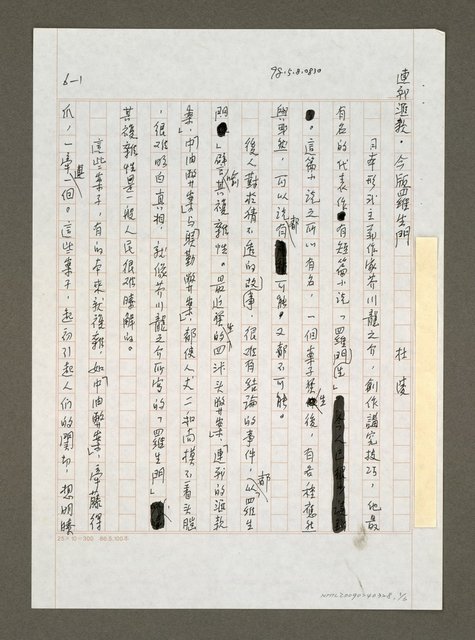 98.5.8.0810
6-1
連戰滙款．今版羅生門
杜陵
日本形式主義作家芥川龍之介，創作講究技巧，他最
有名的代表作有短篇小說「羅生門」
。這篇小說之所以有名，一個案子發生後，有各種應然
與事然，可以說都有可能。又都不可能。
後人對於猜不透的故事，很难有結論的事件，都以羅生
門」譬喻其複雜性。最近發生的四汴头弊案，連戰的滙款
案，中油弊案，与殷勤弊案，都使人丈二和尚摸不著头腦
，很难明白真相，就像芥川龍之介所寫的「羅生門」
其複雜性是一般人民很难瞭解的。
這些案子，有的本來就複雜，如中油弊案，牽藤得
瓜，一牽連一個。這些案子，起初引起人们的関切，想明瞭
25×10=300
NMTL20090240328, 1/6